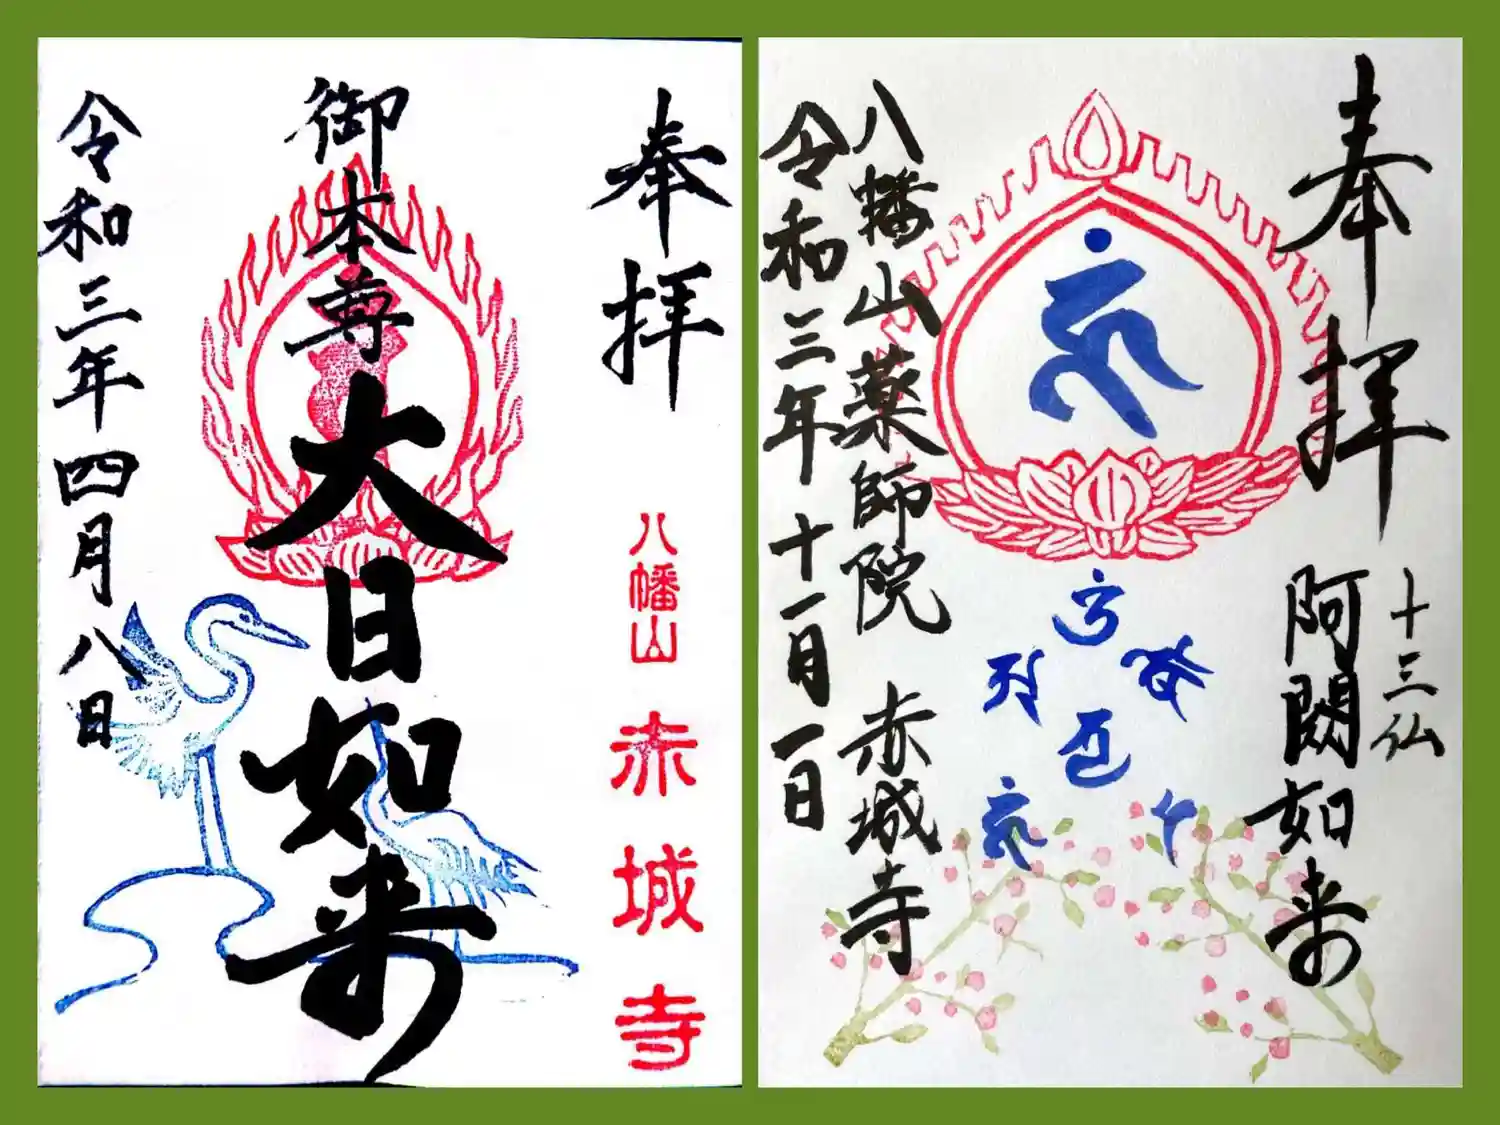 奉拝
八幡山
赤城寺
御本尊
大日如来
令和三年四月八日
奉拝
十三仏
阿閦如来
八幡山薬師院 赤城寺
令和三年十一月一日